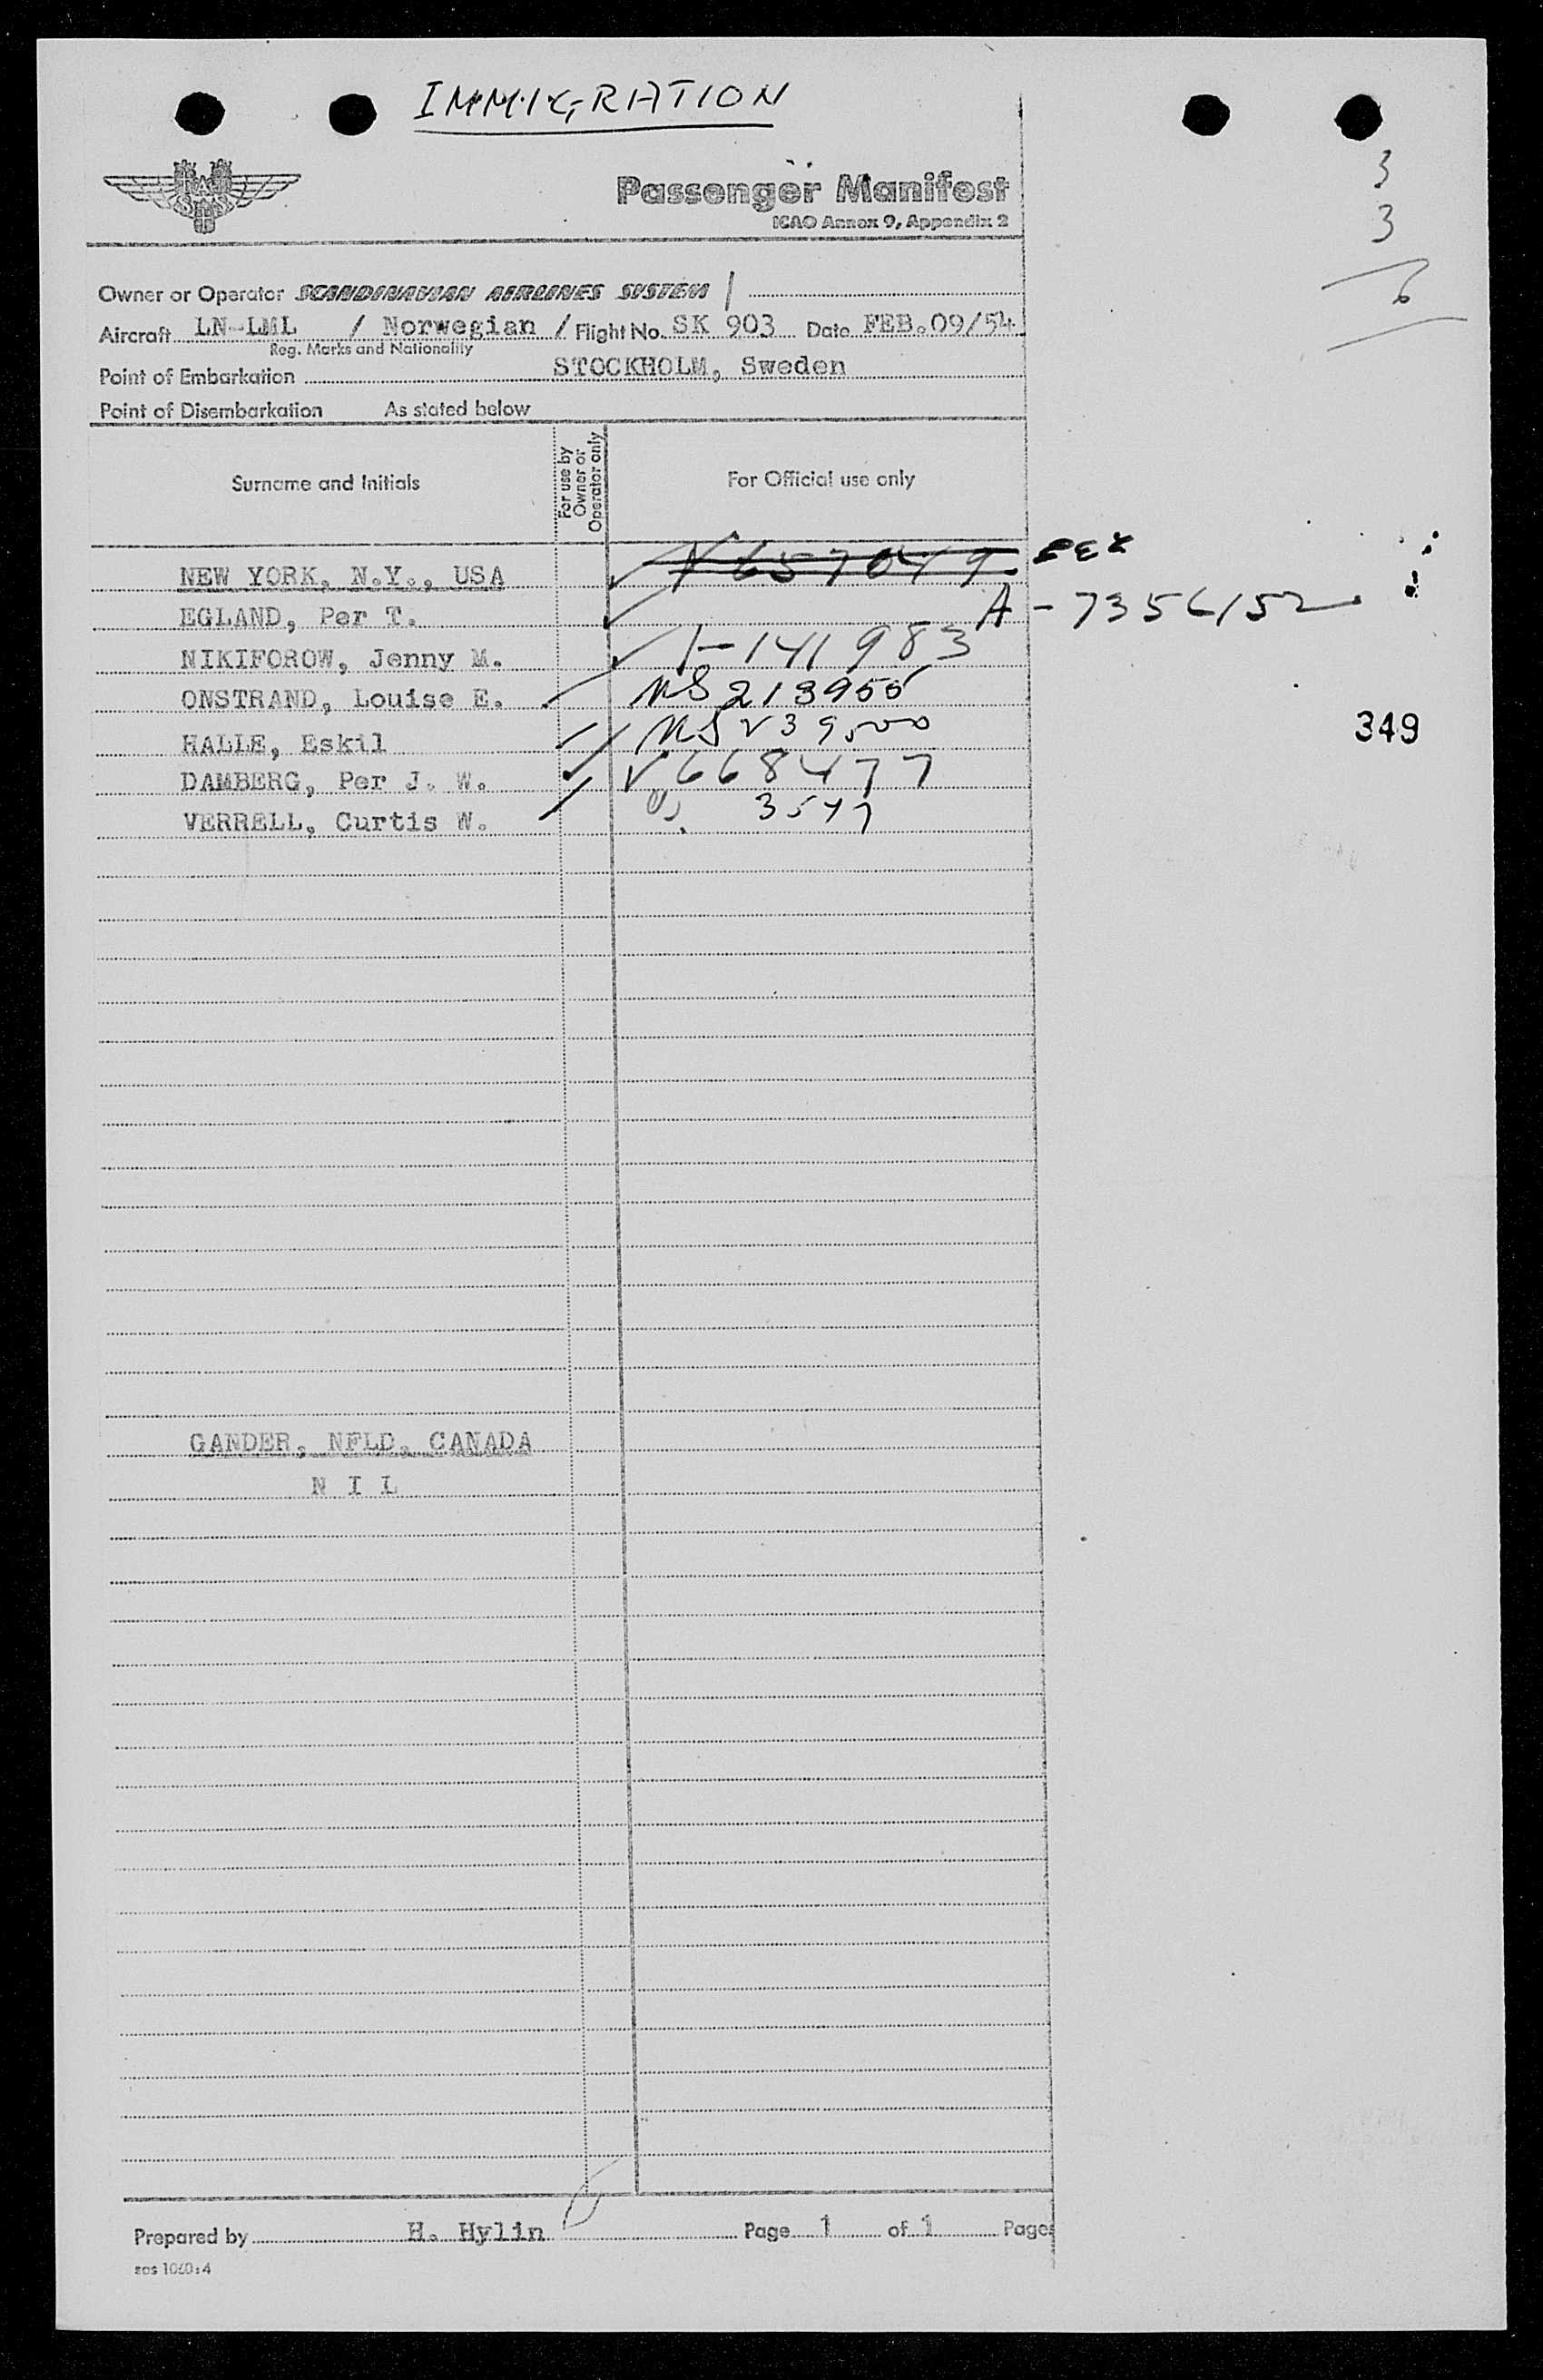 IMMIGRATION
3
3
6
SAS
Passenger Manifest
ICAO Annex 9, Appendix 2
Owner or Operator SCANDINAVIAN AIRLINES SYSTEM /
Aircraft LN-LML / Norwegian / Flight No. SK 903 Date FEB.09/54
Reg. Marks and Nationality
Point of Embarkation STOCKHOLM, Sweden
Point of Disembarkation As stated below
Surname and Initials
For use by Owner or Operator only
For Official use only
NEW YORK, N.Y., USA
EGLAND, Per T. A-7356152
NIKIFOROW, Jenny M. 1-141983
ONSTRAND, Louise E. NS 213955
HALLE, Eskil
DAMBERG, Per J. W. V668477
VERRELL, Curtis W.
349
GANDER, NFLD, CANADA
N I L
Prepared by H. Hylin Page 1 of 1 Pages
sas 1060:4